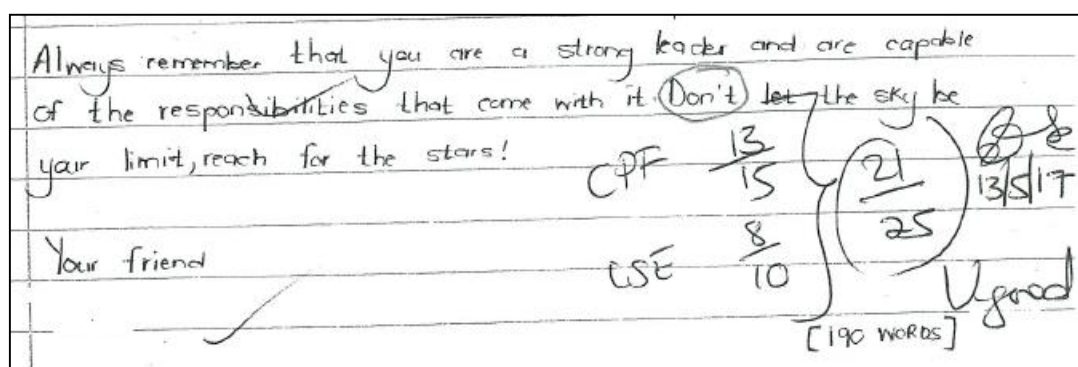 Always remember that you are a strong leader and are capable
of the responsibilities that come with it. Don't let the sky be
your limit, reach for the stars!
CPF 13/15
21/25
13/5/17
Your friend
CSE 8/10
V good
[190 WORDS]